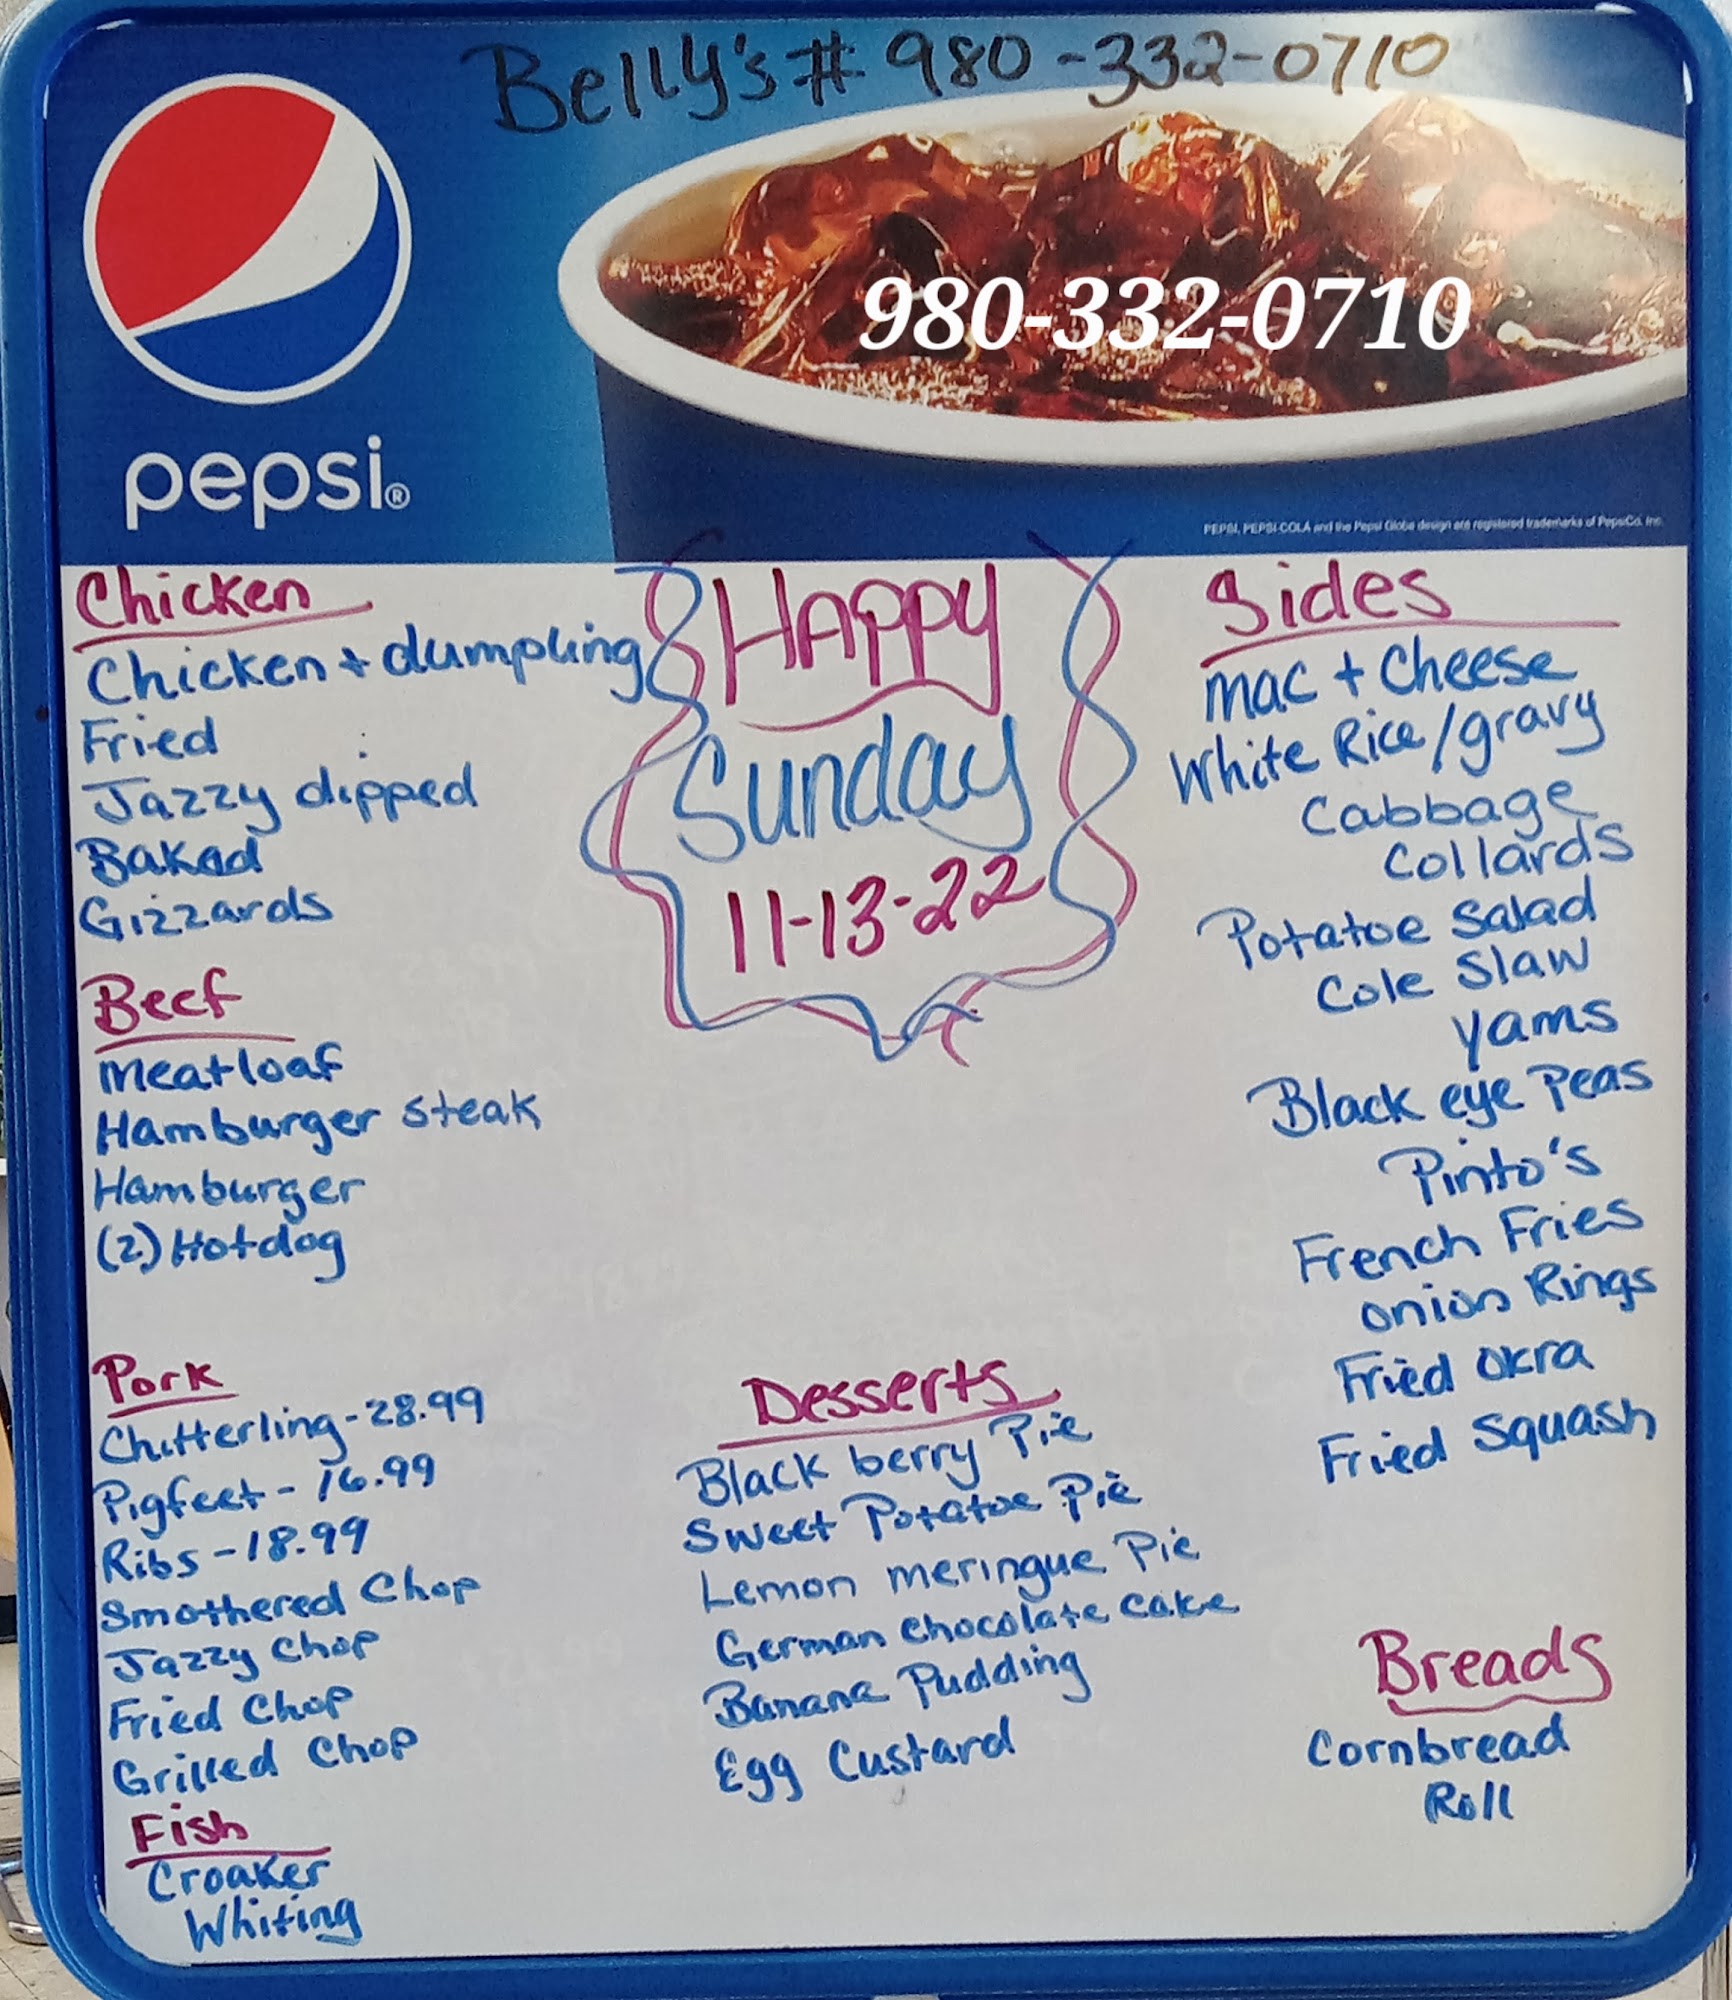 Belly's # 980-332-0710
980-332-0710
pepsi®
PEPSI, PEPSI-COLA and the Pepsi Globe design are registered trademarks of PepsiCo, Inc.
Happy
Sunday
11-13-22
Chicken
Chicken + dumpling
Fried
Jazzy dipped
Baked
Gizzards
Beef
Meatloaf
Hamburger steak
Hamburger
(2) Hotdog
Pork
Chitterling - 28.99
Pigfeet - 16.99
Ribs - 18.99
Smothered Chop
Jazzy Chop
Fried Chop
Grilled Chop
Fish
Croaker
Whiting
Desserts
Black berry Pie
Sweet Potatoe Pie
Lemon meringue Pie
German chocolate cake
Banana Pudding
Egg Custard
Sides
Mac + Cheese
White Rice/gravy
Cabbage
Collards
Potatoe Salad
Cole Slaw
Yams
Black eye Peas
Pinto's
French Fries
Onion Rings
Fried Okra
Fried Squash
Breads
Cornbread
Roll